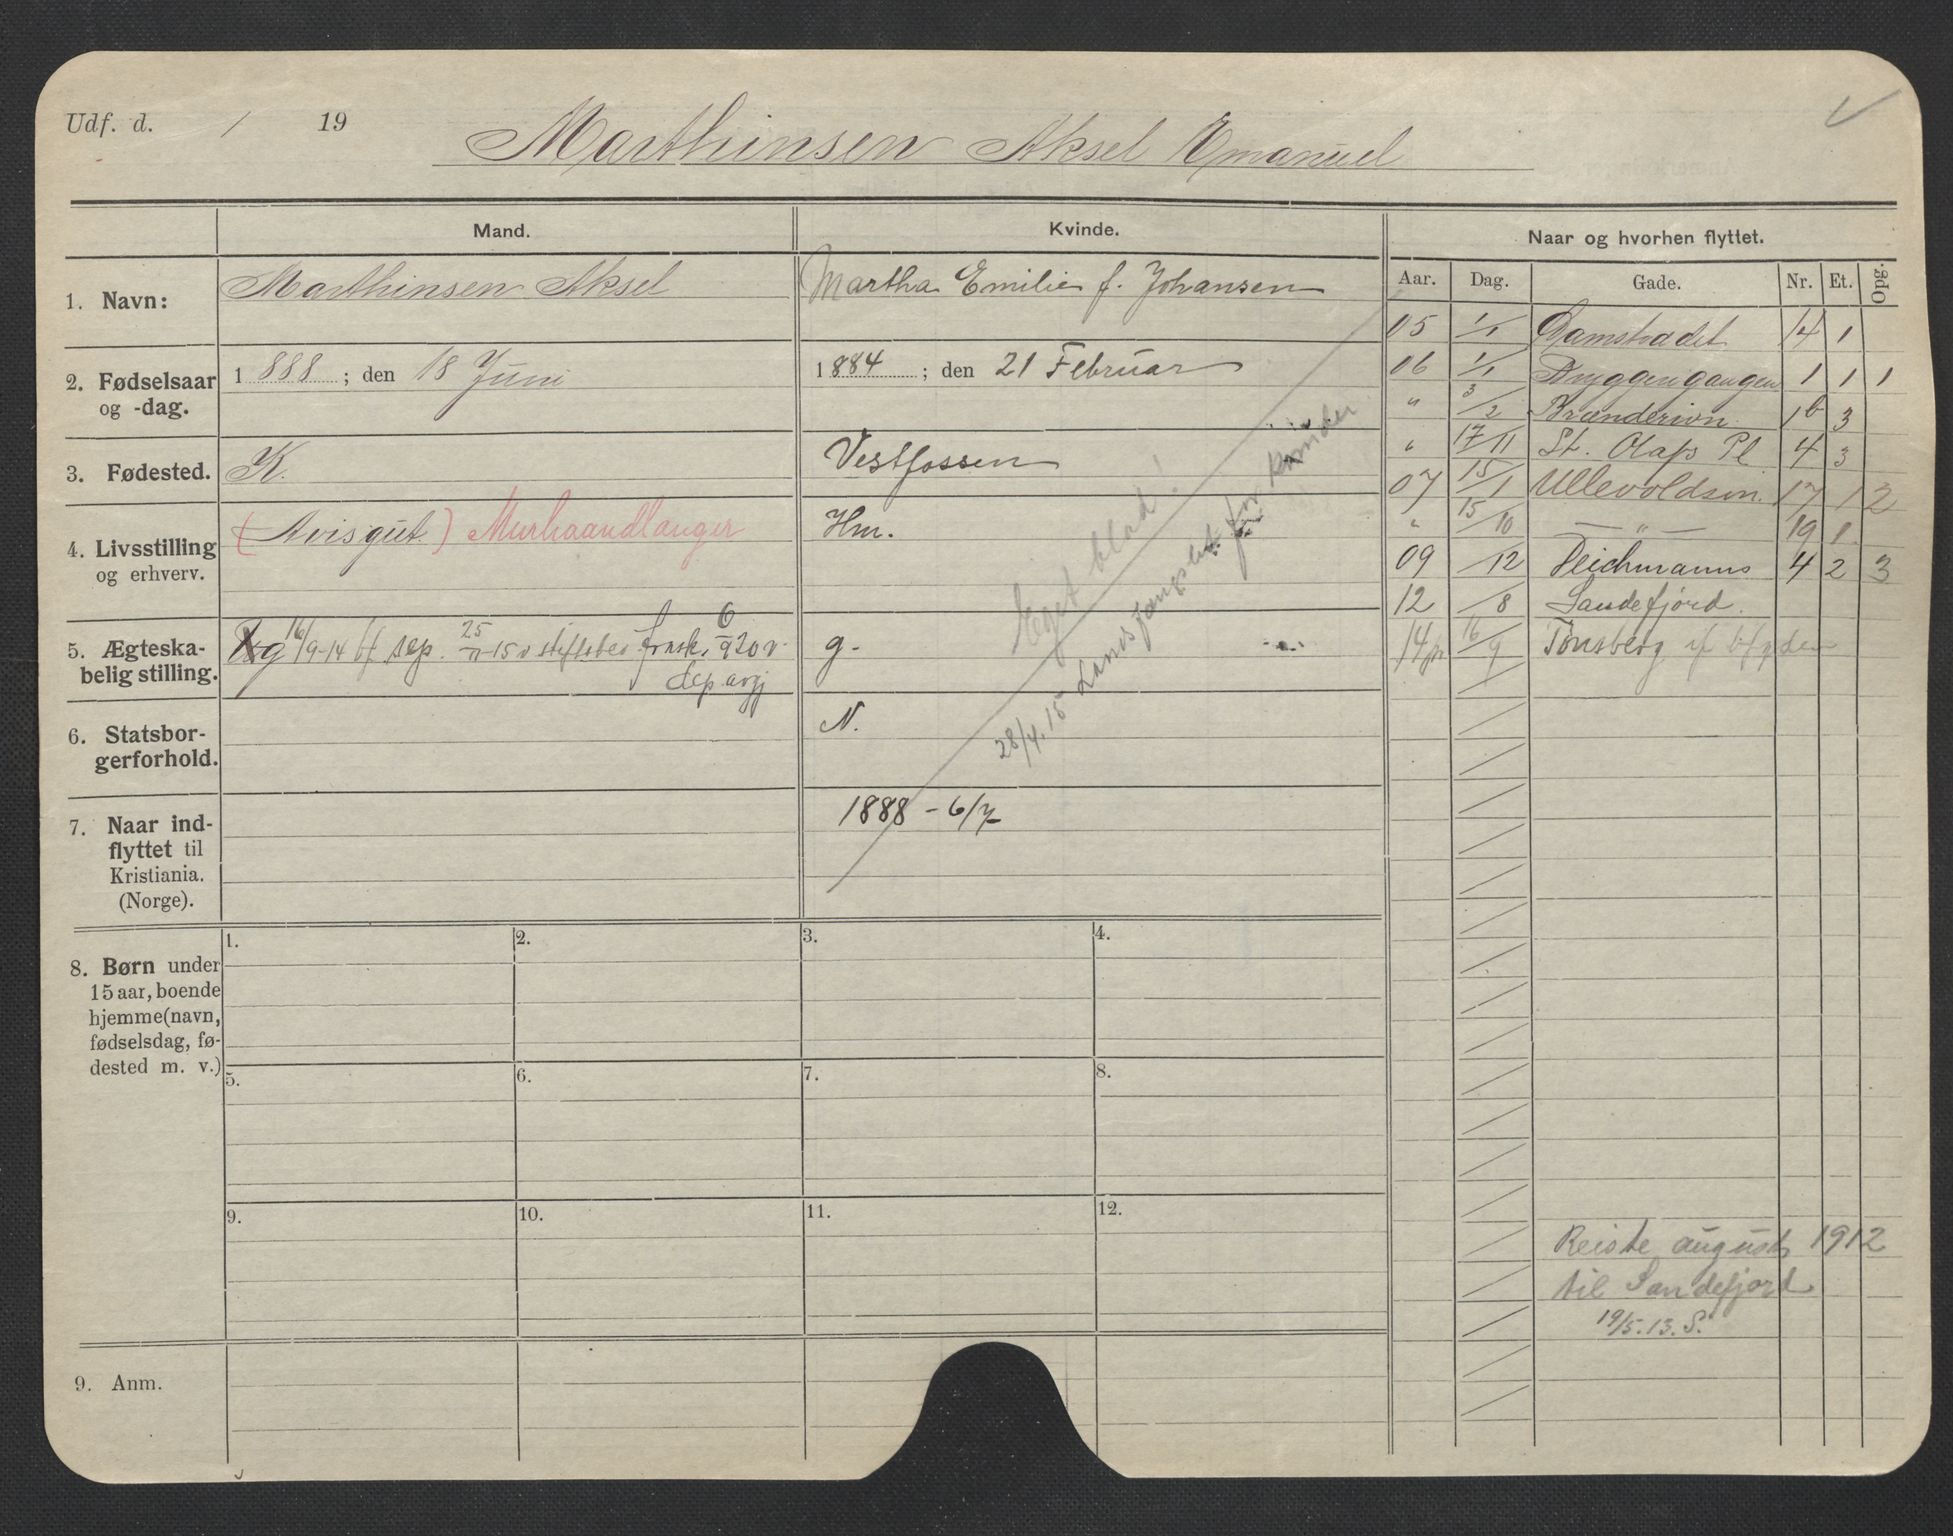 Udf. d. / 19
Marthinsen Aksel Emanuel
Mand.
Kvinde.
Naar og hvorhen flyttet.
Aar. Dag. Gade. Nr. Et. Opg.
1. Navn: Marthinsen Aksel
Martha Emilie f. Johansen
2. Fødselsaar og -dag.
1888; den 18 Juni
1884; den 21 Februar
3. Fødested. K.
Vestfossen
4. Livsstilling og erhverv.
(Avisgut) Murhaandlanger
Hm.
5. Ægteskabelig stilling.
g 16/9-14 bf. sep. 25/11-15 v stiftsbev
sep avgj
g.
6. Statsborgerforhold.
N.
7. Naar indflyttet til Kristiania. (Norge).
1888 - 6/7
Eget blad!
28/4.15 Landsfængslet for kvinder
8. Børn under
15 aar, boende
hjemme (navn,
fødselsdag, fø-
dested m. v.)
1. 2. 3. 4.
5. 6. 7. 8.
9. 10. 11. 12.
9. Anm.
05 1/1 Damstradet 14 1
06 1/1 Bryggerigangen 1 1 1
" 3/2 Brænderivn 1b 3
" 17/11 St. Olafs Pl 4 3
07 15/1 Ullevoldsvn. 17 1 2
" 15/10 — " — 19 1
09 /12 Deichmanns 4 2 3
12 /8 Sandefjord.
14 16/9 Tønsberg
Reiste august 1912
til Sandefjord
19/5.13. S.